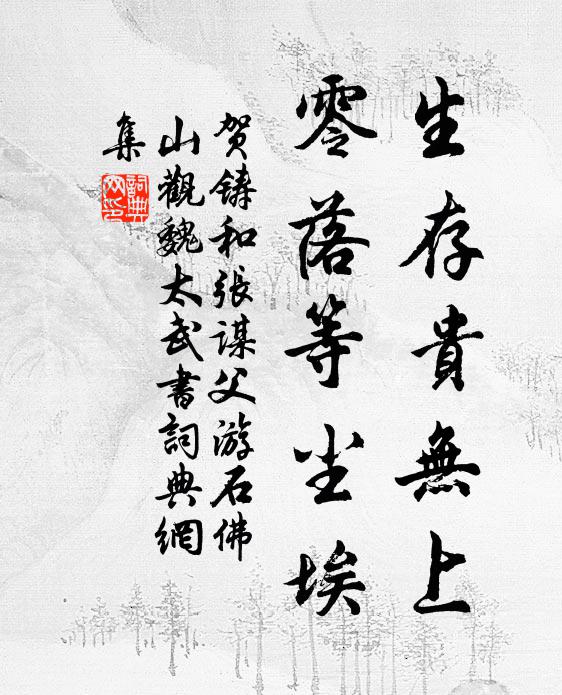 生存貴無上
零落等尘埃
贺鋳和張謀父游石佛
山觀魏太武書詞典網
集
詞典网印